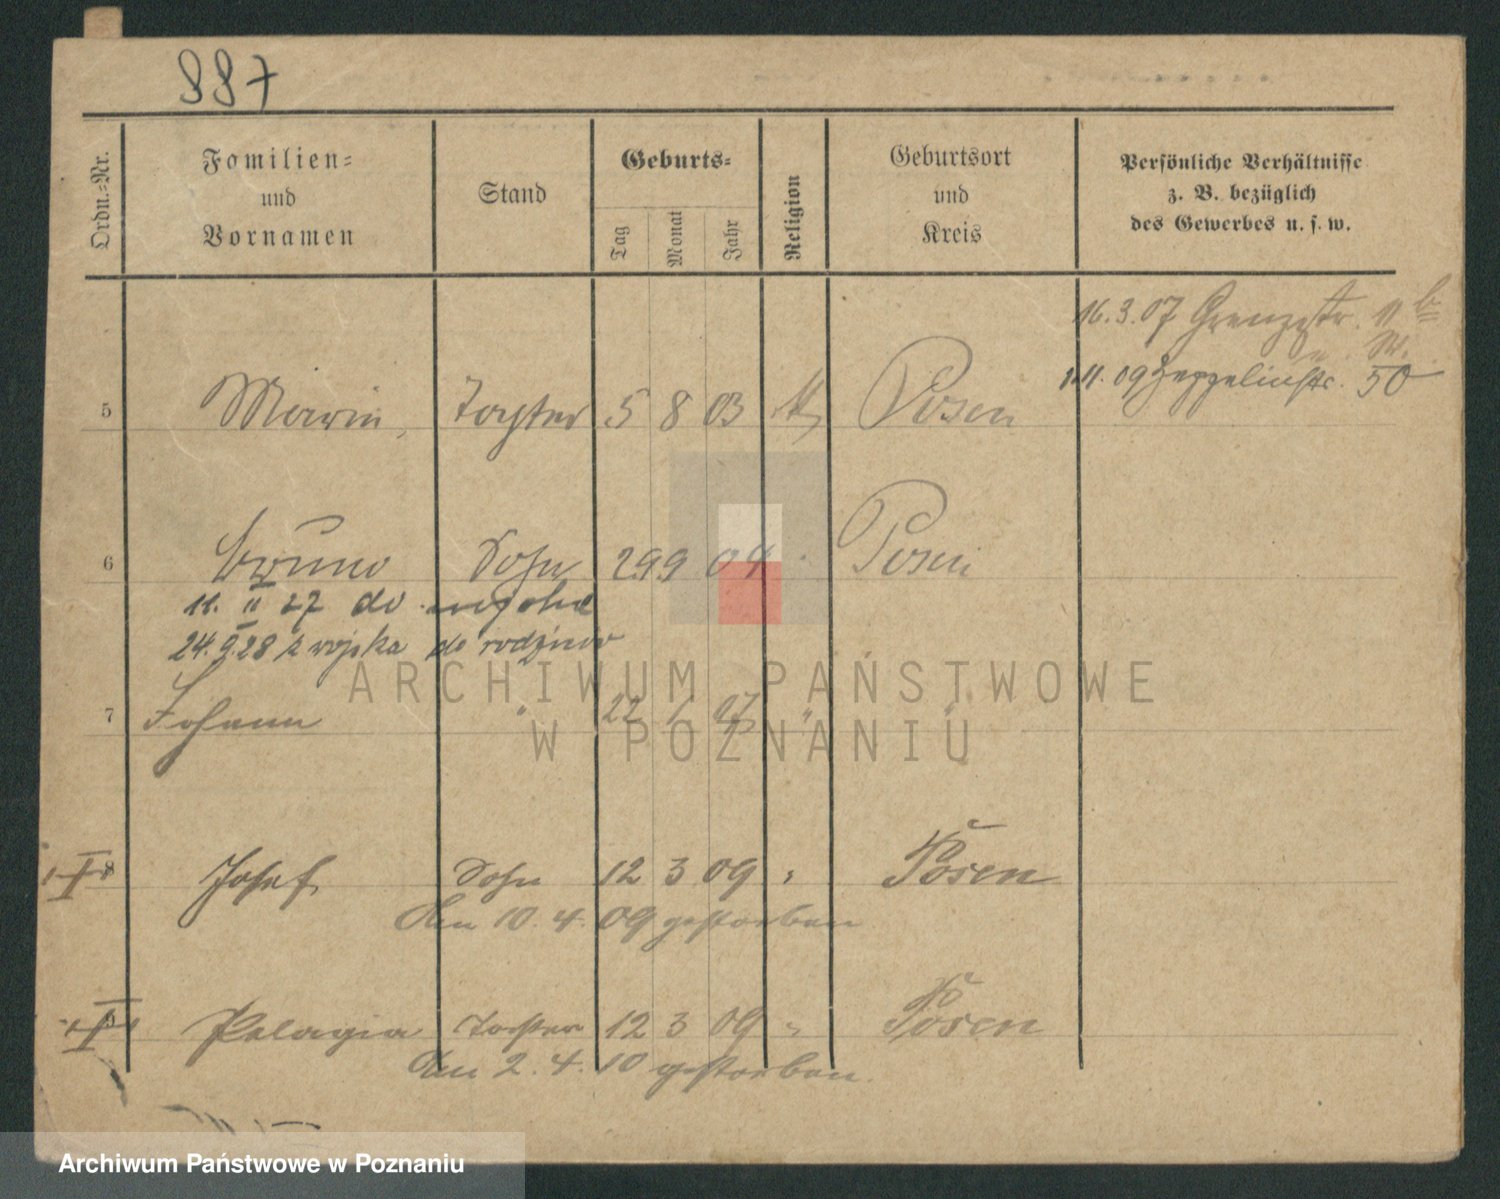 887
Ordn.-Nr.
Familien-
und
Vornamen
Stand
Geburts-
Tag
Monat
Jahr
Religion
Geburtsort
und
Kreis
Persönliche Verhältnisse
z. B. bezüglich
des Gewerbes u. s. w.
16.3.07 Grenzstr. 11 b
W.
1.11.09 Zeppelinstr. 50
5 Maria, Tochter 5 8 03 Posen
6 Bruno Sohn 29 9 04 Posen
11. II 27 do
24.9.28 z wojska do rodziców
7 Johann " 22 1 07 " "
8 Josef Sohn 12 3 09 " Posen
den 10. 4. 09 gestorben
9 Pelagia Tochter 12 3 09 " Posen
den 2. 4. 10 gestorben.
ARCHIWUM PAŃSTWOWE
W POZNANIU
Archiwum Państwowe w Poznaniu